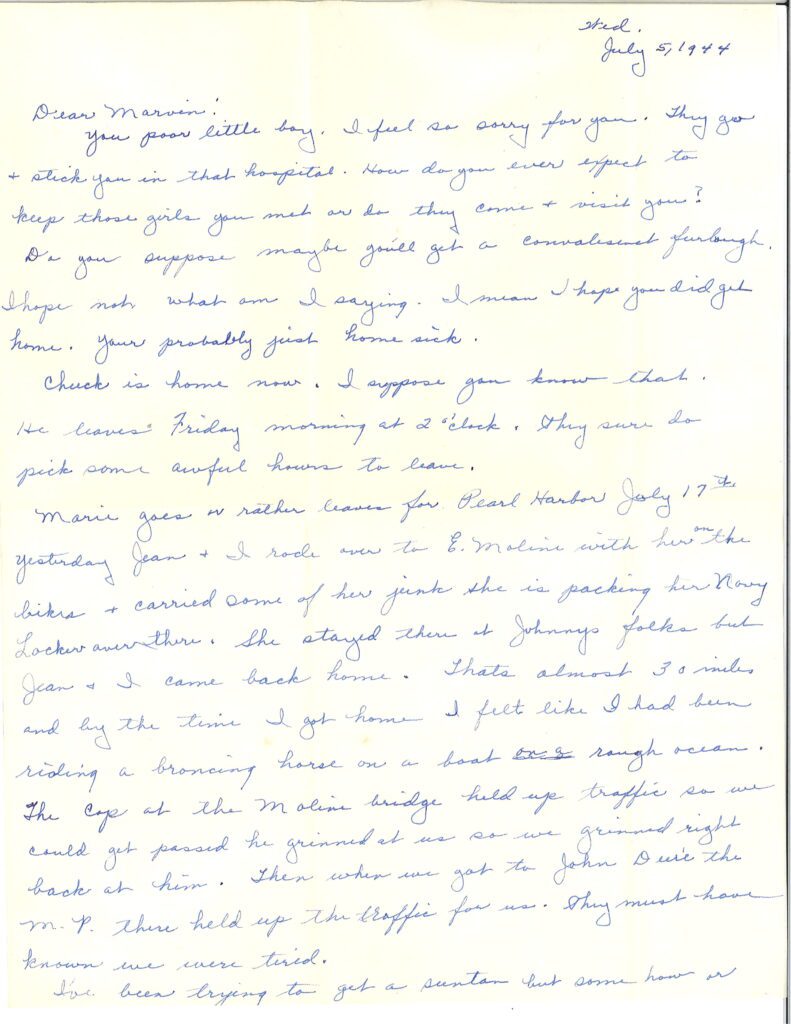 Wed.
July 5, 1944
Dear Marvin!
You poor little boy. I feel so sorry for you. They go
+ stick you in that hospital. How do you ever expect to
keep those girls you met or do they come + visit you?
Do you suppose maybe you'll get a convalesinet furlough.
I hope not what am I saying. I mean I hope you did get
home. Your probably just home sick.
Chuck is home now. I suppose you know that.
He leaves Friday morning at 2 o'clock. They sure do
pick some awful hours to leave.
Marie goes or rather leaves for Pearl Harbor July 17th
yesterday Jean + I rode over to E. Moline with her on the
bikes + carried some of her junk she is packing her Navy
Locker over there. She stayed there at Johnnys folks but
Jean + I came back home. Thats almost 30 miles
and by the time I got home I felt like I had been
riding a broncing horse on a boat on a rough ocean.
The cop at the Moline bridge held up traffic so we
could get passed he grinned at us so we grinned right
back at him. Then when we got to John Deere the
M.P. there held up the traffic for us. They must have
known we were tired.
I've been trying to get a suntan but some how or